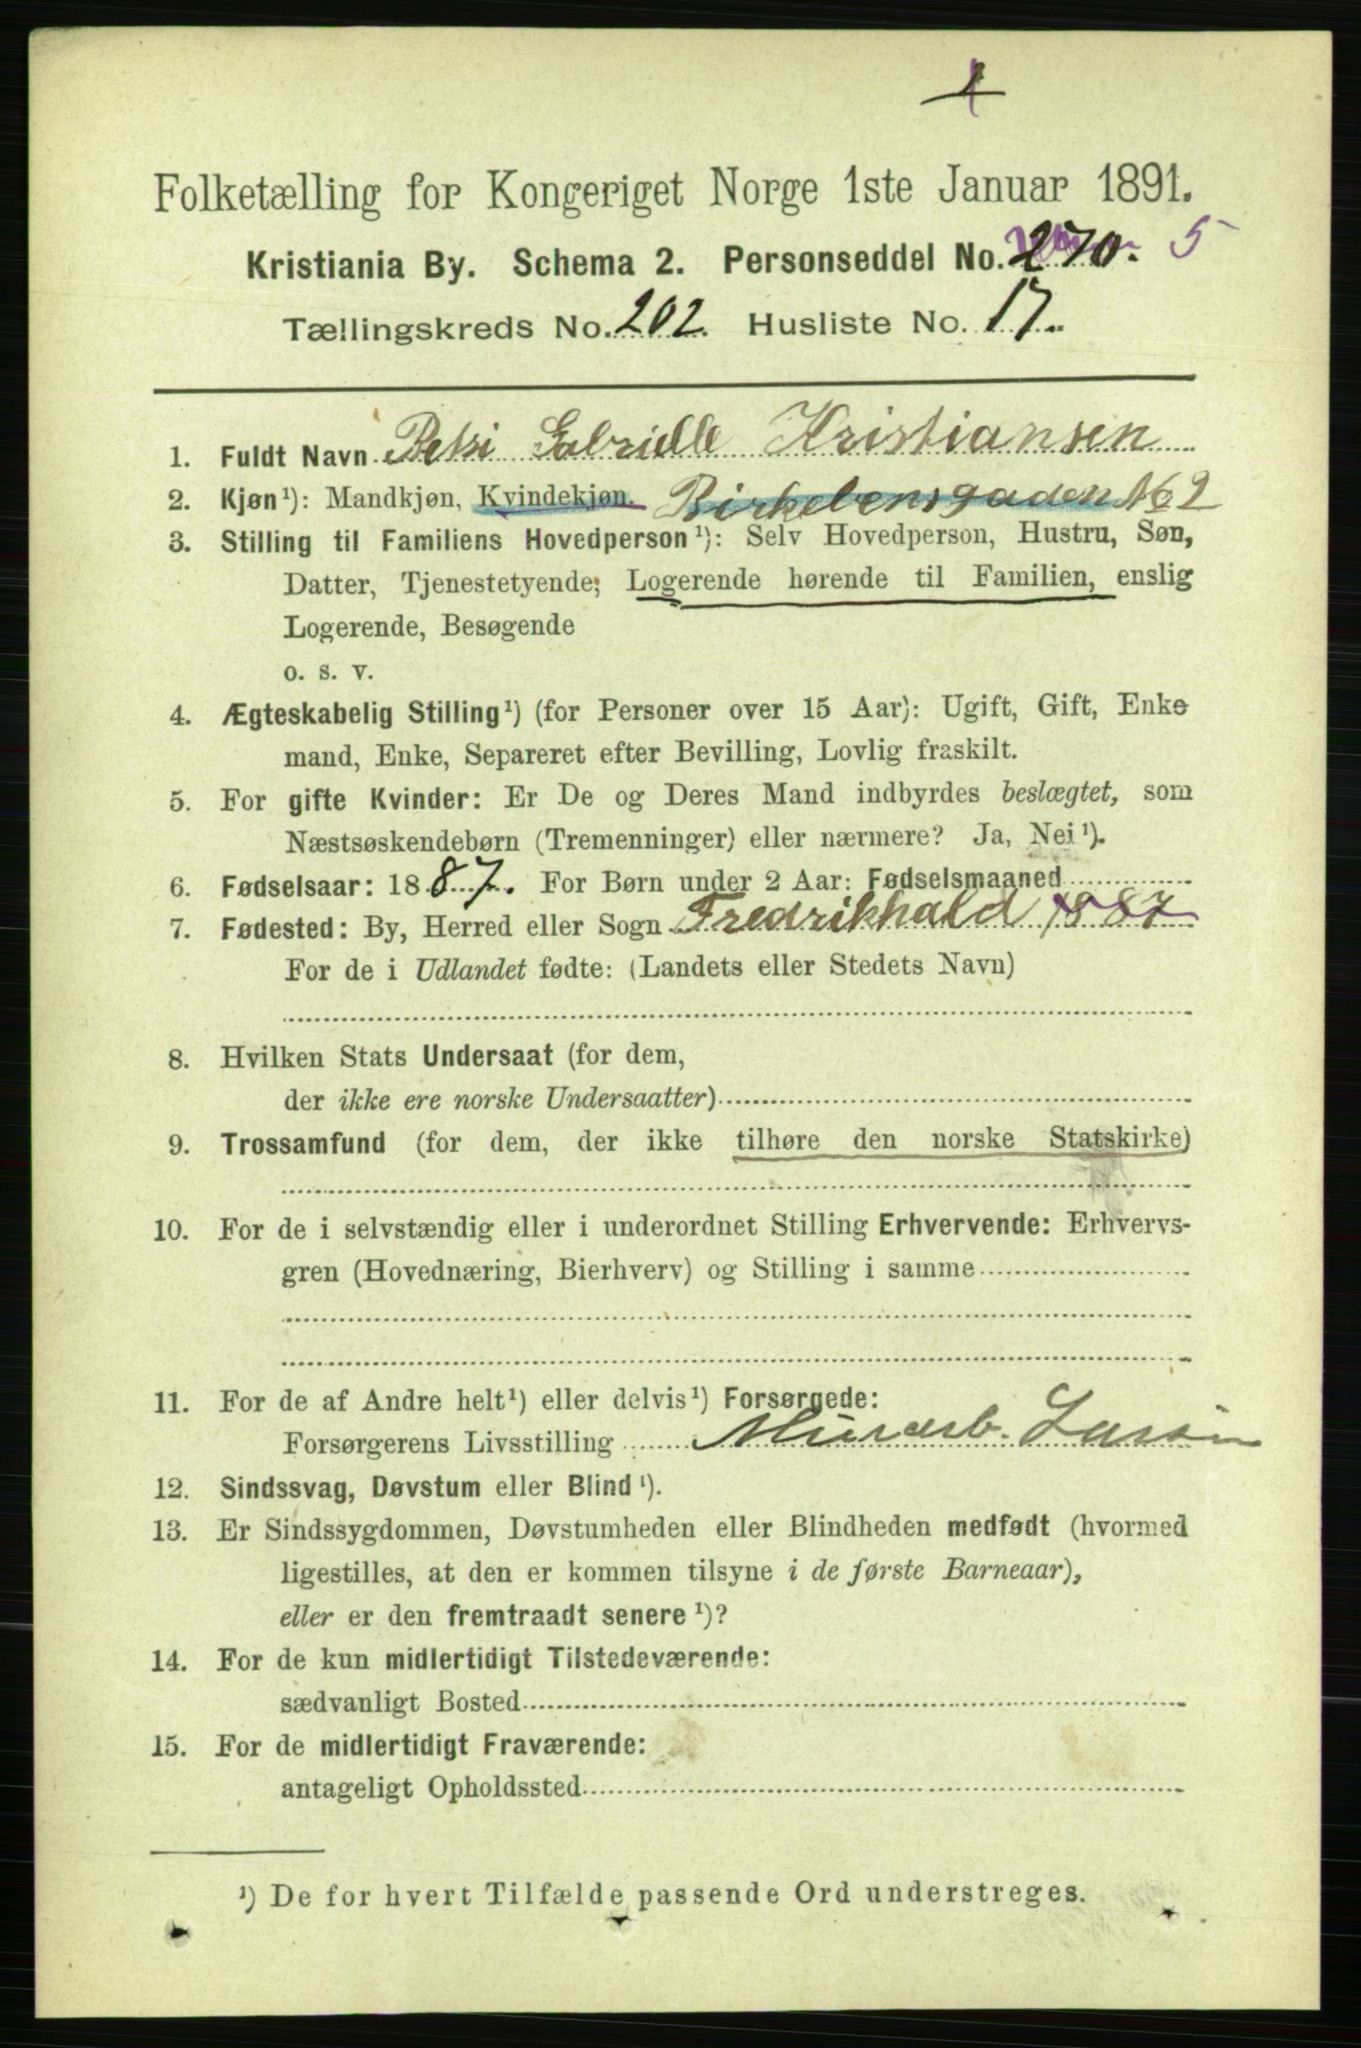 Folketælling for Kongeriget Norge 1ste Januar 1891.
Kristiania By. Schema 2. Personseddel No. 270. 5
Tællingskreds No. 202. Husliste No. 17.
1. Fuldt Navn Betsi Gabrielle Kristiansen
2. Kjøn¹): Mandkjøn, Kvindekjøn. Birkebensgaden No 2
3. Stilling til Familiens Hovedperson¹): Selv Hovedperson, Hustru, Søn,
Datter, Tjenestetyende; Logerende hørende til Familien, enslig
Logerende, Besøgende
o. s. v.
4. Ægteskabelig Stilling¹) (for Personer over 15 Aar): Ugift, Gift, Enke
mand, Enke, Separeret efter Bevilling, Lovlig fraskilt.
5. For gifte Kvinder: Er De og Deres Mand indbyrdes beslægtet, som
Næstsøskendebørn (Tremenninger) eller nærmere? Ja, Nei¹).
6. Fødselsaar: 1887. For Børn under 2 Aar: Fødselsmaaned
7. Fødested: By, Herred eller Sogn Fredrikhald 1887
For de i Udlandet fødte: (Landets eller Stedets Navn)
8. Hvilken Stats Undersaat (for dem,
der ikke ere norske Undersaatter)
9. Trossamfund (for dem, der ikke tilhøre den norske Statskirke)
10. For de i selvstændig eller i underordnet Stilling Erhvervende: Erhvervs-
gren (Hovednæring, Bierhverv) og Stilling i samme
11. For de af Andre helt¹) eller delvis¹) Forsørgede:
Forsørgerens Livsstilling Murarb.
12. Sindssvag, Døvstum eller Blind¹).
13. Er Sindssygdommen, Døvstumheden eller Blindheden medfødt (hvormed
ligestilles, at den er kommen tilsyne i de første Barneaar),
eller er den fremtraadt senere¹)?
14. For de kun midlertidigt Tilstedeværende:
sædvanligt Bosted
15. For de midlertidigt Fraværende:
antageligt Opholdssted
¹) De for hvert Tilfælde passende Ord understreges.